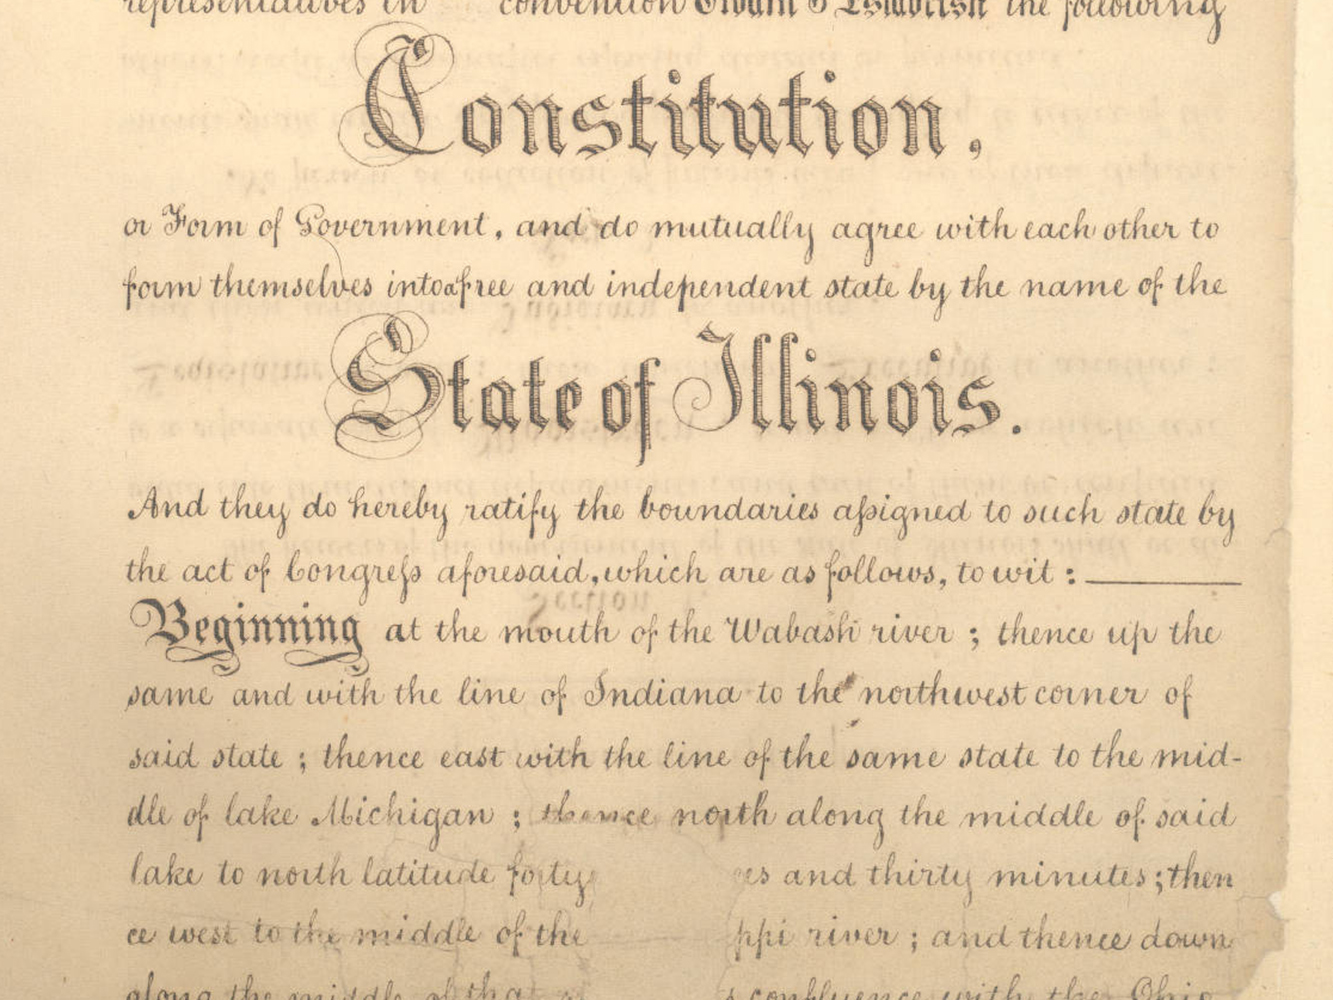 representatives in convention Ordain & Establish the following
Constitution,
or Form of Government, and do mutually agree with each other to
form themselves into a free and independent state by the name of the
State of Illinois.
And they do hereby ratify the boundaries aſsigned to such state by
the act of Congreſs aforesaid, which are as follows, to wit:
Beginning at the mouth of the Wabash river ; thence up the
same and with the line of Indiana to the northwest corner of
said state ; thence east with the line of the same state to the mid-
dle of lake Michigan ; thence north along the middle of said
lake to north latitude forty es and thirty minutes ; then
ce west to the middle of the ppi river ; and thence down
along the middle of that s confluence with the Ohio